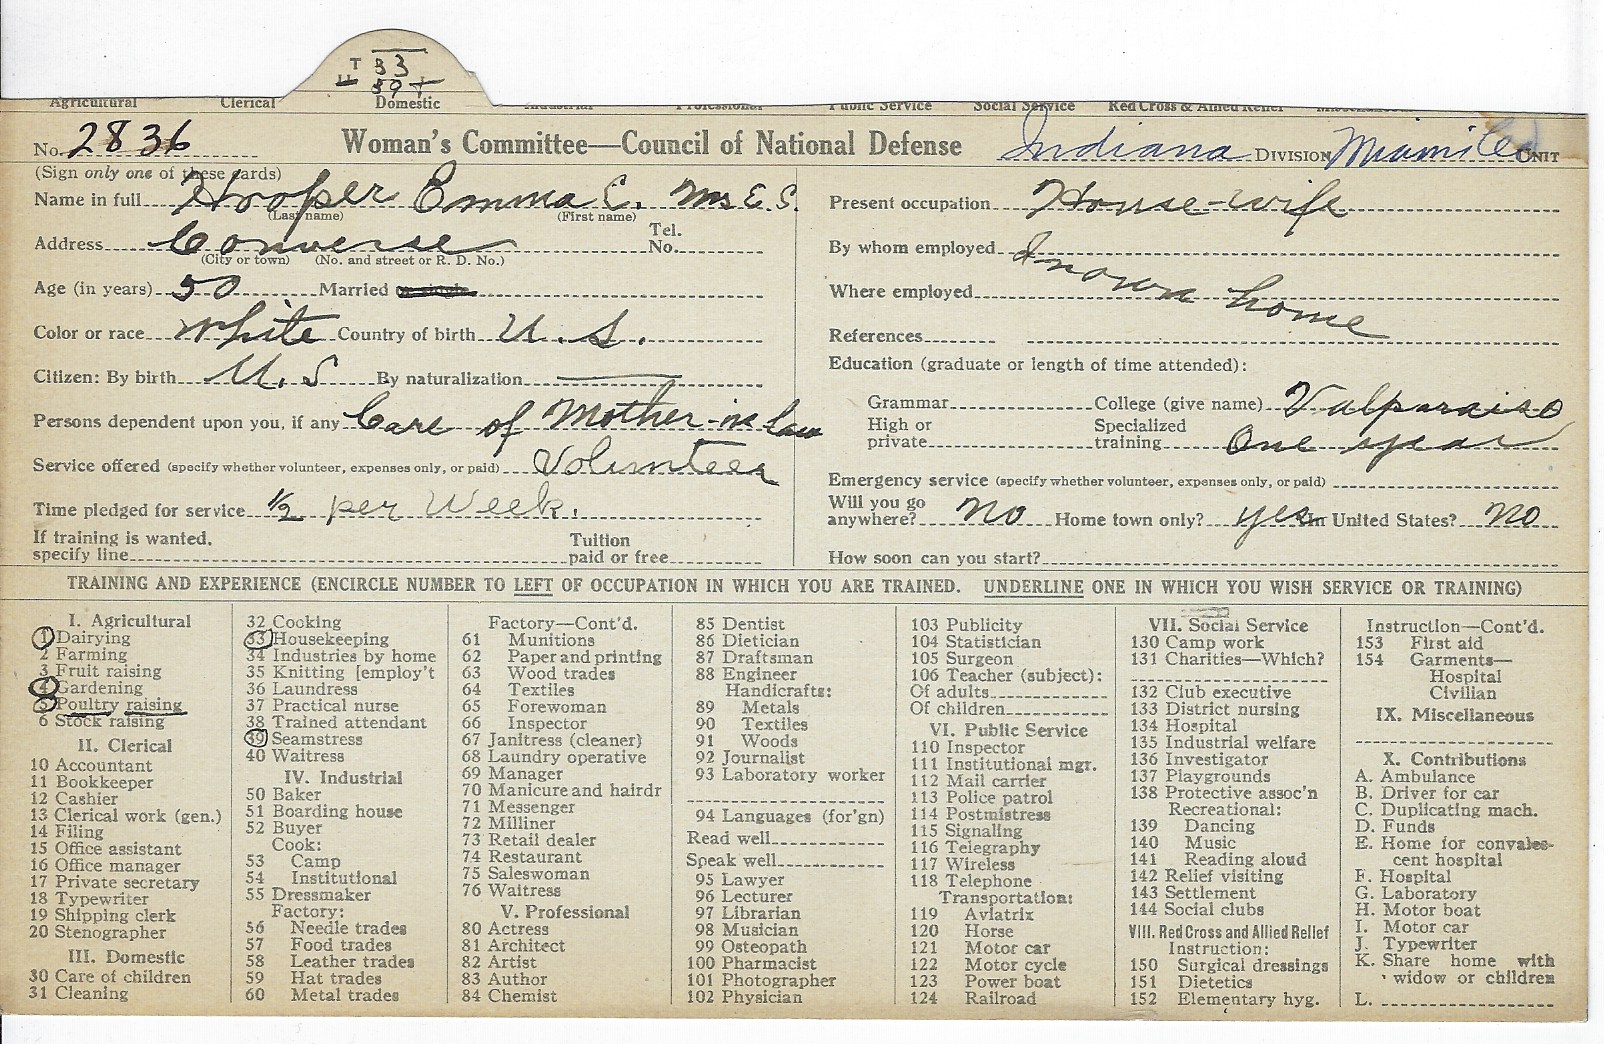 T 33
39
Agricultural Clerical Domestic Industrial Professional Public Service Social Service Red Cross & Allied Relief Miscellaneous
No. 2836 Woman's Committee—Council of National Defense Indiana DIVISION Miami Co UNIT
(Sign only one of these cards)
Name in full Hooper Emma E. Mrs E. S.
(Last name) (First name)
Address Converse Tel. No.
(City or town) (No. and street or R. D. No.)
Age (in years) 50 Married or single
Color or race White Country of birth U. S.
Citizen: By birth U. S By naturalization
Persons dependent upon you, if any Care of Mother-in law
Service offered (specify whether volunteer, expenses only, or paid) Volunteer
Time pledged for service 1/2 per Week.
If training is wanted, specify line Tuition paid or free
Present occupation House-wife
By whom employed In own home
Where employed
References
Education (graduate or length of time attended):
Grammar College (give name) Valparaiso
High or private Specialized training One year
Emergency service (specify whether volunteer, expenses only, or paid)
Will you go anywhere? No Home town only? yes In United States? No
How soon can you start?
TRAINING AND EXPERIENCE (ENCIRCLE NUMBER TO LEFT OF OCCUPATION IN WHICH YOU ARE TRAINED. UNDERLINE ONE IN WHICH YOU WISH SERVICE OR TRAINING)
I. Agricultural
1 Dairying
2 Farming
3 Fruit raising
4 Gardening
5 Poultry raising
6 Stock raising
II. Clerical
10 Accountant
11 Bookkeeper
12 Cashier
13 Clerical work (gen.)
14 Filing
15 Office assistant
16 Office manager
17 Private secretary
18 Typewriter
19 Shipping clerk
20 Stenographer
III. Domestic
30 Care of children
31 Cleaning
32 Cooking
33 Housekeeping
34 Industries by home
35 Knitting [employ't
36 Laundress
37 Practical nurse
38 Trained attendant
39 Seamstress
40 Waitress
IV. Industrial
50 Baker
51 Boarding house
52 Buyer
Cook:
53 Camp
54 Institutional
55 Dressmaker
Factory:
56 Needle trades
57 Food trades
58 Leather trades
59 Hat trades
60 Metal trades
Factory—Cont'd.
61 Munitions
62 Paper and printing
63 Wood trades
64 Textiles
65 Forewoman
66 Inspector
67 Janitress (cleaner)
68 Laundry operative
69 Manager
70 Manicure and hairdr
71 Messenger
72 Milliner
73 Retail dealer
74 Restaurant
75 Saleswoman
76 Waitress
V. Professional
80 Actress
81 Architect
82 Artist
83 Author
84 Chemist
85 Dentist
86 Dietician
87 Draftsman
88 Engineer
Handicrafts:
89 Metals
90 Textiles
91 Woods
92 Journalist
93 Laboratory worker
94 Languages (for'gn)
Read well
Speak well
95 Lawyer
96 Lecturer
97 Librarian
98 Musician
99 Osteopath
100 Pharmacist
101 Photographer
102 Physician
103 Publicity
104 Statistician
105 Surgeon
106 Teacher (subject):
Of adults
Of children
VI. Public Service
110 Inspector
111 Institutional mgr.
112 Mail carrier
113 Police patrol
114 Postmistress
115 Signaling
116 Telegraphy
117 Wireless
118 Telephone
Transportation:
119 Aviatrix
120 Horse
121 Motor car
122 Motor cycle
123 Power boat
124 Railroad
VII. Social Service
130 Camp work
131 Charities—Which?
132 Club executive
133 District nursing
134 Hospital
135 Industrial welfare
136 Investigator
137 Playgrounds
138 Protective assoc'n
Recreational:
139 Dancing
140 Music
141 Reading aloud
142 Relief visiting
143 Settlement
144 Social clubs
VIII. Red Cross and Allied Relief
Instruction:
150 Surgical dressings
151 Dietetics
152 Elementary hyg.
Instruction—Cont'd.
153 First aid
154 Garments—
Hospital
Civilian
IX. Miscellaneous
X. Contributions
A. Ambulance
B. Driver for car
C. Duplicating mach.
D. Funds
E. Home for convales-
cent hospital
F. Hospital
G. Laboratory
H. Motor boat
I. Motor car
J. Typewriter
K. Share home with
widow or children
L.